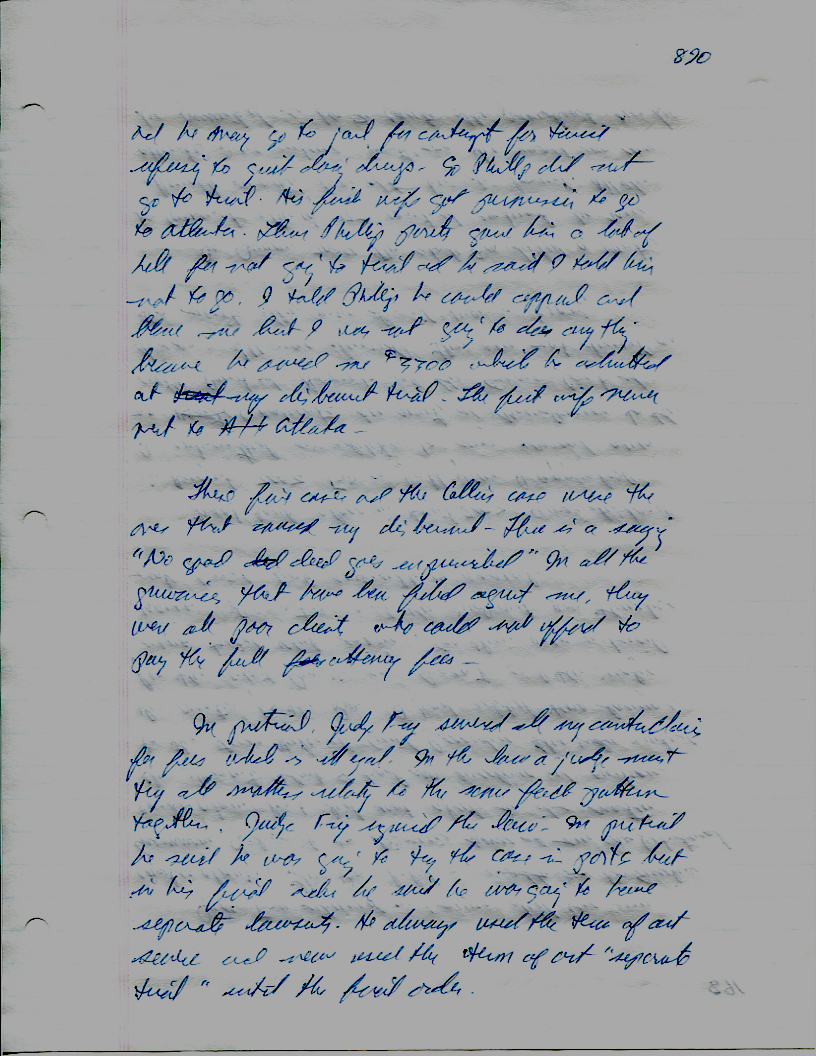 890
and he may go to jail for contempt for
refusing to quit doing drugs. So Phillip did not
go to trial. His first wife got permission to go
to Atlanta. Then Phillip parents gave him a lot of
hell for not going to trial and he said I told him
not to go. I told Phillip he could appeal and
blame me but I was not going to do anything
because he owed me $3700 which he admitted
at trial my disbarment trial. The first wife never
went to Att Atlanta -
These five cases and the Collins case were the
ones that caused my disbarment - There is a saying
"No good did deed goes unpunished" In all the
grievances that have been filed against me, they
were all poor client who could not afford to
pay the full fees attorney fees -
In pretrial, Judge Fry severed all my counterclaims
for fees which is illegal. In the law a judge must
try all matters relating to the same fact pattern
together. Judge Fry ignored the law - In pretrial
he said he was going to try the case in parts but
in his final order he said he was going to have
separate lawsuits. He always used the term of art
sever and never used the term of art "separate
trial" until the final order.
163